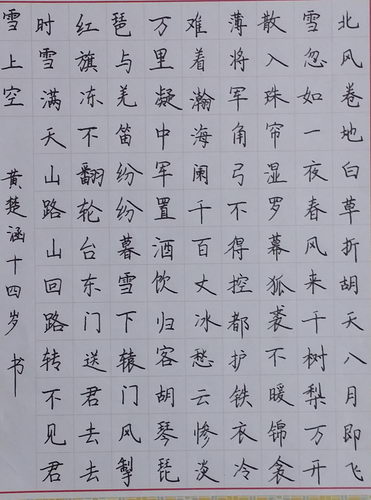 北风卷地白草折胡天八月即飞
雪忽如一夜春风来千树梨万开
散入珠帘湿罗幕狐裘不暖锦衾
薄将军角弓不得控都护铁衣冷
难着瀚海阑千百丈冰愁云惨淡
万里凝中军置酒饮归客胡琴琵
琶与羌笛纷纷暮雪下辕门风掣
红旗冻不翻轮台东门送君去去
时雪满天山路山回路转不见君
雪上空 黄楚涵十四岁书